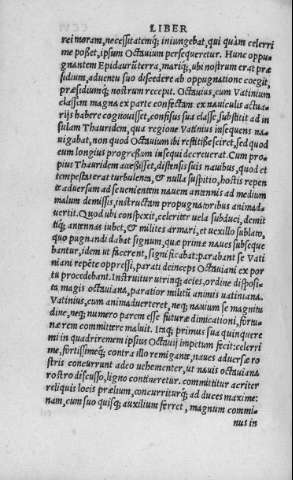 LIBER
rei moram, necessitatemq́; iniungebat, qui quàm celerri
me posset, ipsum Octauium persequeretur. Hunc oppu-
gnantem Epidaurũ terra, mariq́;, ubi nostrum erat præ
sidium, aduentu suo discedere ab oppugnatione coegit,
præsidiumq́; nostrum recepit. Octauius, cum Vatinium
classem magna ex parte confectam ex nauiculis actua-
rijs habere cognouisset, confisus sua classe, substitit ad in
sulam Thauridem, qua regione Vatinius insequens na-
uigabat, non quod Octauium ibi restitisse sciret, sed quod
eum longius progressum insequi decreuerat. Cum pro-
pius Thauridem accessisset, distensis suis nauibus, quod et
tempestas erat turbulenta, & nulla suspitio, hostis repen
te aduersam ad se uenientem nauem antennis ad medium
malum demissis, instructam propugnatoribus animad-
uertit. Quod ubi conspexit, celeriter uela subduci, demit
tiq́; antennas iubet, & milites armari, et uexillo sublato,
quo pugnandi dabat signum, quæ primæ naues subseque
bantur, idem ut facerent, significabat: parabant se Vati
niani repente oppressi, parati deinceps Octauiani ex por
tu procedebant. Instruitur utrinq; acies, ordine disposi-
ta magis octauiana, paratior militũ animis uatiniana.
Vatinius, cum animaduerteret, neq; nauium se magnitu
dine, neq; numero parem esse futuræ dimicationi, fortu-
næ rem committere maluit. Itaq; primus sua quinquere
mi in quadriremem ipsius Octauij impetum fecit: celerri
me, fortissimeq́; contra illo remigante, naues aduersæ ro
stris concurrunt adeo uehementer, ut nauis octauiana
rostro discusso, ligno contineretur. committitur acriter
reliquis locis prælium, concurriturq́; ad duces maxime:
nam, cum suo quisq; auxilium ferret, magnum commi-
nus in